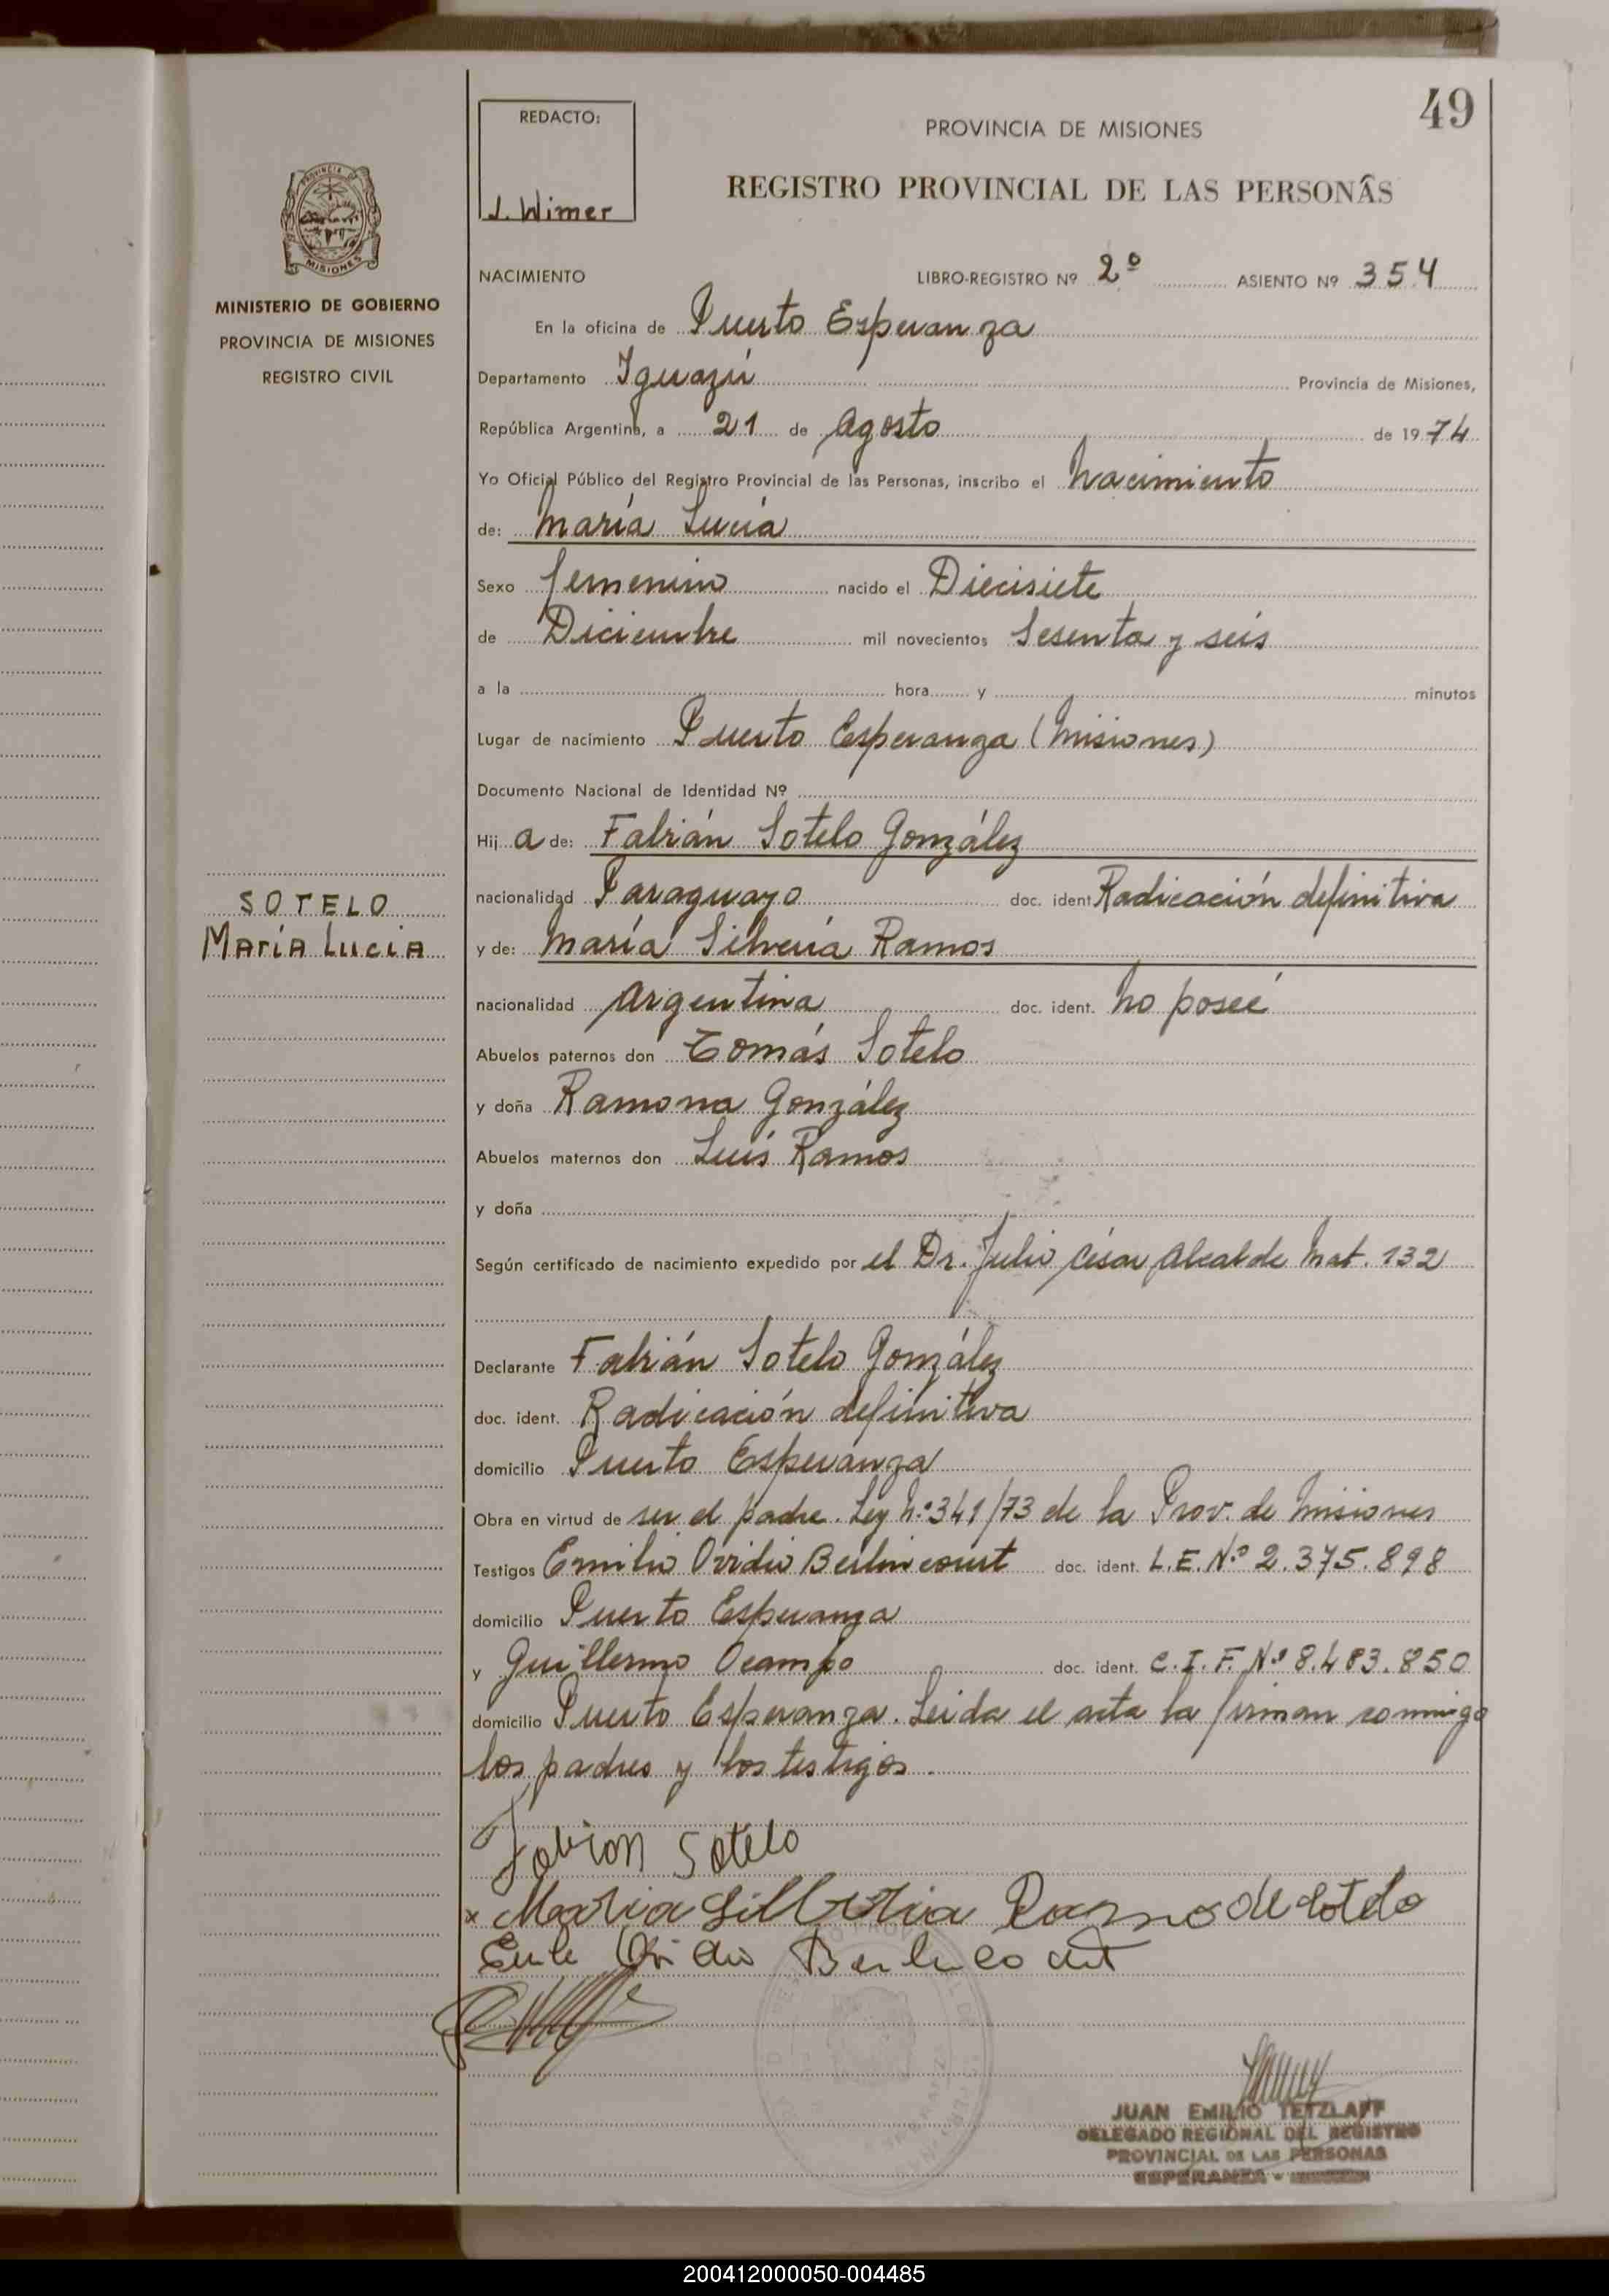 49
REDACTO:
J. Wimer
PROVINCIA DE MISIONES
REGISTRO PROVINCIAL DE LAS PERSONAS
MINISTERIO DE GOBIERNO
PROVINCIA DE MISIONES
REGISTRO CIVIL
NACIMIENTO LIBRO-REGISTRO Nº 2º ASIENTO Nº 354
En la oficina de Puerto Esperanza
Departamento Iguazú Provincia de Misiones,
República Argentina, a 21 de Agosto de 1974
Yo Oficial Público del Registro Provincial de las Personas, inscribo el Nacimiento
de: María Lucía
Sexo femenino nacido el Diecisiete
de Diciembre mil novecientos Sesenta y seis
a la hora y minutos
Lugar de nacimiento Puerto Esperanza (Misiones)
Documento Nacional de Identidad Nº
Hij a de: Fabián Sotelo González
SOTELO
María Lucia
nacionalidad Paraguayo doc. ident Radicación definitiva
y de: María Silveria Ramos
nacionalidad Argentina doc. ident. No poseé
Abuelos paternos don Tomás Sotelo
y doña Ramona González
Abuelos maternos don Luís Ramos
y doña
Según certificado de nacimiento expedido por el Dr. Julio César Alcalde Mat. 132
Declarante Fabián Sotelo González
doc. ident. Radicación definitiva
domicilio Puerto Esperanza
Obra en virtud de ser el padre. Ley Nº 341/73 de la Prov. de Misiones
Testigos Emilio Ovidio Berlincourt doc. ident. L.E. Nº 2.375.898
domicilio Puerto Esperanza
y Guillermo Ocampo doc. ident. C.I.F. Nº 8.483.850
domicilio Puerto Esperanza. Leida el acta la firman conmigo
los padres y los testigos.
Fabian Sotelo
x Maria Silveria Ramos de Sotelo
Ovidio Berlincourt
JUAN EMILIO TETZLAFF
DELEGADO REGIONAL DEL REGISTRO
PROVINCIAL DE LAS PERSONAS
ESPERANZA -
200412000050-004485